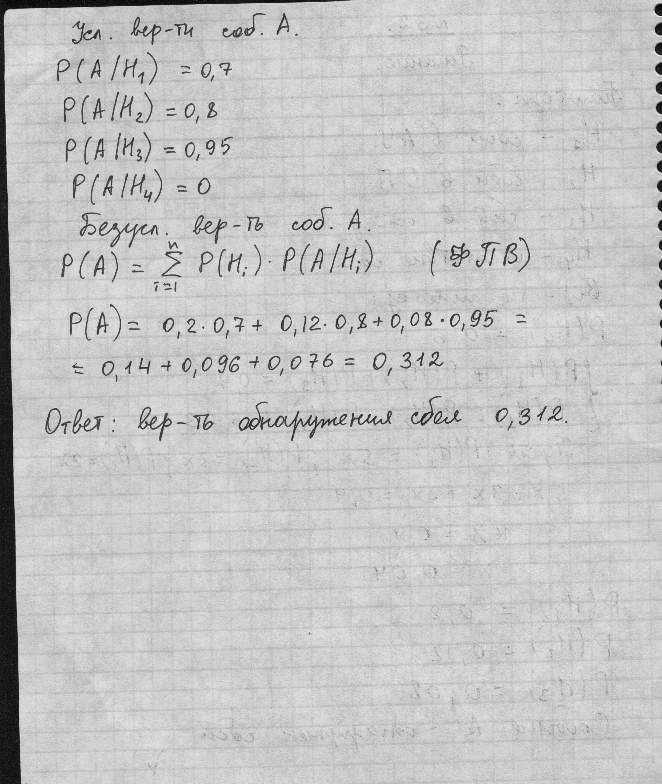 Усл. вер-ти соб. А.
P(A/H₁) = 0,7
P(A/H₂) = 0,8
P(A/H₃) = 0,95
P(A/H₄) = 0
Безусл. вер-ть соб. А.
P(A) = n∑i=1 P(Hᵢ)·P(A/Hᵢ) (ф ПВ)
P(A) = 0,2·0,7 + 0,12·0,8 + 0,08·0,95 =
= 0,14 + 0,096 + 0,076 = 0,312
Ответ: вер-ть обнаружения сбоя 0,312.